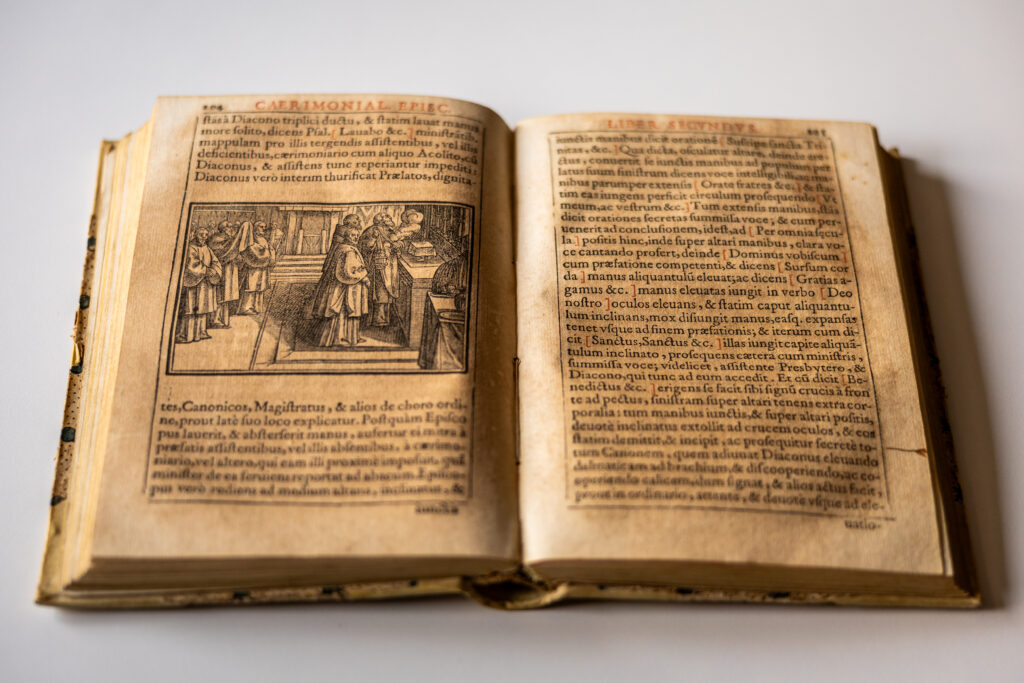 204 CAERIMONIAL. EPISC.
ſtās à Diacono triplici ductu, & ſtatim lauat manus
more ſolito, dicens Pſal. [ Lauabo &c. ] miniſtrātib.
mappulam pro illis tergendis aſſiſtentibus, vel illis
deficientibus, cærimoniario cum aliquo Acolito, cū
Diaconus, & aſſiſtens tunc reperiantur impediti:
Diaconus verò interim thurificat Prælatos, dignita-
tes, Canonicos, Magiſtratus, & alios de choro ordi-
ne, prout latè ſuo loco explicatur. Poſtquàm Epiſco
pus lauerit, & abſterſerit manus, aufertur ei mitra à
præfatis aſſiſtentibus, vel illis abſentibus, à cærimo-
niario, vel altero, qui eam illi proximè impoſuit, qui
miniſter de ea ſeruiens reportat ad abacum. Epiſco-
pus verò rediens ad medium altaris, inclinatus, &
LIBER SECVNDVS. 205
iunctis manibus dicit orationē [ Suſcipe ſancta Tri-
nitas, &c. ] Qua dicta, oſculatur altare, deinde ere-
ctus, conuertit ſe iunctis manibus ad populum per
latus ſuum ſiniſtrum dicens voce intelligibili, ac ma-
nibus parumper extenſis [ Orate fratres &c. ] & ſta-
tim eas iungens perficit circulum proſequendo [ Vt
meum, ac veſtrum &c. ] Tum extenſis manibus, ſtās
dicit orationes ſecretas ſummiſſa voce; & cum per-
uenerit ad concluſionem, ideſt, ad [ Per omnia ſęcu-
la. ] poſitis hinc, inde ſuper altari manibus, clara vo-
ce cantando profert, deinde [ Dominus vobiſcum ]
cum præfatione competenti, & dicens [ Surſum cor
da ] manus aliquantulū eleuat; ac dicens [ Gratias a-
gamus &c. ] manus eleuatas iungit in verbo [ Deo
noſtro ] oculos eleuans, & ſtatim caput aliquantu-
lum inclinans, mox diſiungit manus, eaſq. expanſas
tenet vſque ad finem præfationis; & iterum cum di-
cit [ Sanctus, Sanctus &c. ] illas iungit capite aliquā-
tulum inclinato, proſequens cætera cum miniſtris,
ſummiſſa voce; videlicet, aſſiſtente Presbytero, &
Diacono, qui tunc ad eum accedit. Et cū dicit [ Be-
nedictus &c. ] erigens ſe facit ſibi ſignū crucis à fron
te ad pectus, ſiniſtram ſuper altari tenens extra cor-
poralia: tum manibus iunctis, & ſuper altari poſitis,
deuotè inclinatus extollit ad crucem oculos, & eos
ſtatim demittit, & incipit, ac proſequitur ſecretè to-
tum Canonem, quem adiuuat Diaconus eleuando
dalmaticam ad brachium, & diſcooperiendo, ac co-
operiendo calicem, dum ſignat, & alios actus facit,
prout in ordinario, attentè, & deuotè vſque ad ele-
uatio-